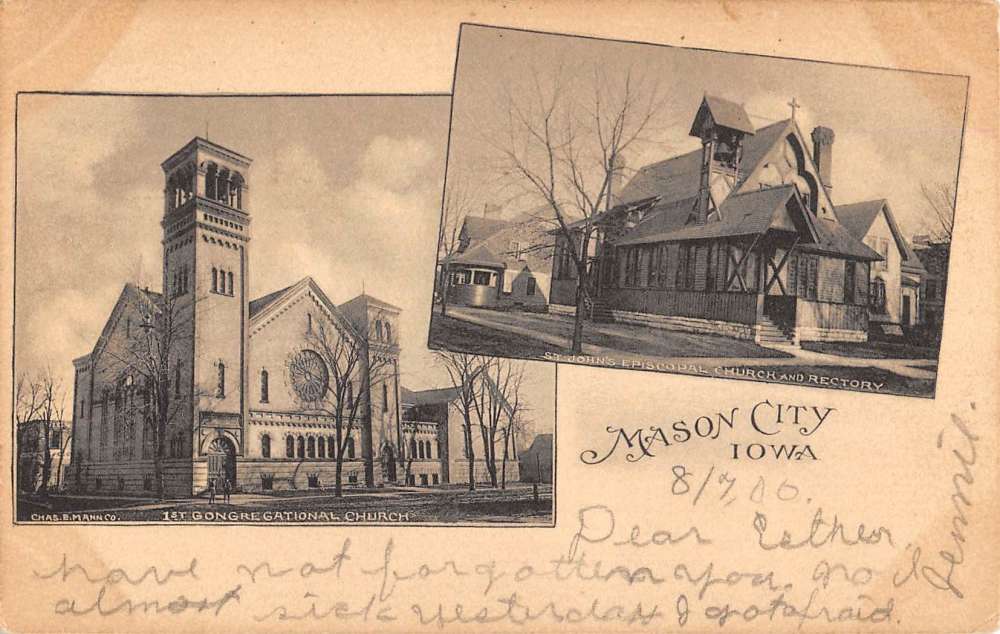 ST. JOHN'S EPISCOPAL CHURCH AND RECTORY
CHAS. E. MANN CO.
1ST CONGREGATIONAL CHURCH
MASON CITY
IOWA
8/7, 06.
Dear Esther,
have not forgotten you, no I
almost sick yesterday I got afraid.
Jennie.